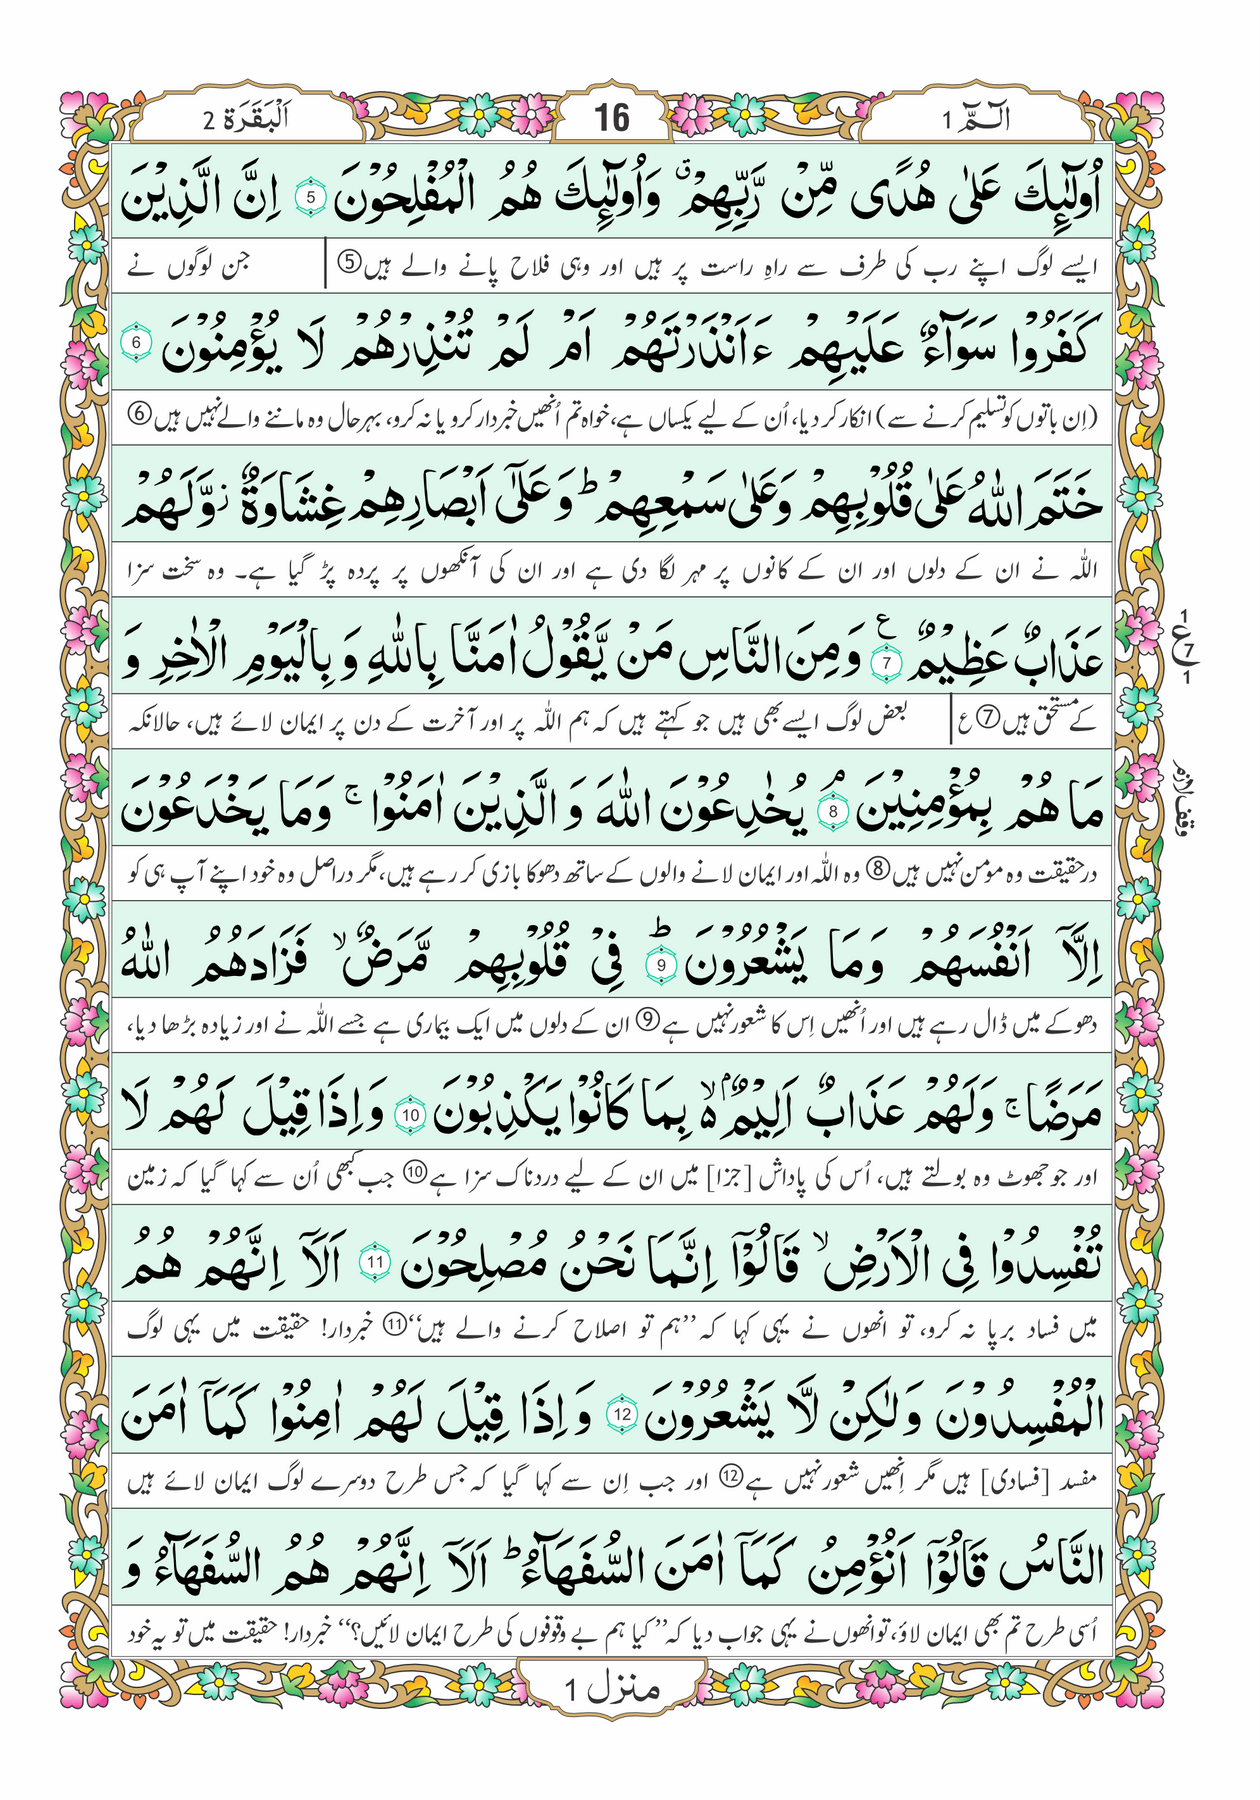 الٓمّٓ 1
16
اَلْبَقَرَة 2
اُولٰٓئِكَ عَلٰى هُدًى مِّنْ رَّبِّهِمْ ۗ وَاُولٰٓئِكَ هُمُ الْمُفْلِحُوْنَ 5 اِنَّ الَّذِيْنَ
ایسے لوگ اپنے رب کی طرف سے راہِ راست پر ہیں اور وہی فلاح پانے والے ہیں⑤ | جن لوگوں نے
كَفَرُوْا سَوَآءٌ عَلَيْهِمْ ءَاَنْذَرْتَهُمْ اَمْ لَمْ تُنْذِرْهُمْ لَا يُؤْمِنُوْنَ 6
(اِن باتوں کو تسلیم کرنے سے) انکار کر دیا، اُن کے لیے یکساں ہے، خواہ تم اُنھیں خبردار کرو یا نہ کرو، بہرحال وہ ماننے والے نہیں ہیں⑥
خَتَمَ اللّٰهُ عَلٰى قُلُوْبِهِمْ وَعَلٰى سَمْعِهِمْ ؕ وَعَلٰٓى اَبْصَارِهِمْ غِشَاوَةٌ ز وَّلَهُمْ
اللّٰہ نے ان کے دلوں اور ان کے کانوں پر مہر لگا دی ہے اور ان کی آنکھوں پر پردہ پڑ گیا ہے۔ وہ سخت سزا
عَذَابٌ عَظِيْمٌ ع 7 وَمِنَ النَّاسِ مَنْ يَّقُوْلُ اٰمَنَّا بِاللّٰهِ وَ بِالْيَوْمِ الْاٰخِرِ وَ
1
ع 7
1
کے مستحق ہیں⑦ ع | بعض لوگ ایسے بھی ہیں جو کہتے ہیں کہ ہم اللّٰہ پر اور آخرت کے دن پر ایمان لائے ہیں، حالانکہ
مَا هُمْ بِمُؤْمِنِيْنَ ۘ 8 يُخٰدِعُوْنَ اللّٰهَ وَ الَّذِيْنَ اٰمَنُوْا ۚ وَمَا يَخْدَعُوْنَ
وقف لازم
درحقیقت وہ مومن نہیں ہیں⑧ وہ اللّٰہ اور ایمان لانے والوں کے ساتھ دھوکا بازی کر رہے ہیں، مگر دراصل وہ خود اپنے آپ ہی کو
اِلَّآ اَنْفُسَهُمْ وَمَا يَشْعُرُوْنَ ؕ 9 فِيْ قُلُوْبِهِمْ مَّرَضٌ ۙ فَزَادَهُمُ اللّٰهُ
دھوکے میں ڈال رہے ہیں اور اُنھیں اِس کا شعور نہیں ہے⑨ ان کے دلوں میں ایک بیماری ہے جسے اللّٰہ نے اور زیادہ بڑھا دیا،
مَرَضًا ۚ وَلَهُمْ عَذَابٌ اَلِيْمٌۢ ۙ۬ بِمَا كَانُوْا يَكْذِبُوْنَ 10 وَاِذَا قِيْلَ لَهُمْ لَا
اور جو جھوٹ وہ بولتے ہیں، اُس کی پاداش [جزا] میں ان کے لیے دردناک سزا ہے⑩ جب کبھی اُن سے کہا گیا کہ زمین
تُفْسِدُوْا فِي الْاَرْضِ ۙ قَالُوْٓا اِنَّمَا نَحْنُ مُصْلِحُوْنَ 11 اَلَآ اِنَّهُمْ هُمُ
میں فساد برپا نہ کرو، تو انھوں نے یہی کہا کہ ’’ہم تو اصلاح کرنے والے ہیں‘‘⑪ خبردار! حقیقت میں یہی لوگ
الْمُفْسِدُوْنَ وَلٰكِنْ لَّا يَشْعُرُوْنَ 12 وَاِذَا قِيْلَ لَهُمْ اٰمِنُوْا كَمَآ اٰمَنَ
مفسد [فسادی] ہیں مگر اِنھیں شعور نہیں ہے⑫ اور جب اِن سے کہا گیا کہ جس طرح دوسرے لوگ ایمان لائے ہیں
النَّاسُ قَالُوْٓا اَنُؤْمِنُ كَمَآ اٰمَنَ السُّفَهَآءُ ؕ اَلَآ اِنَّهُمْ هُمُ السُّفَهَآءُ وَ
اُسی طرح تم بھی ایمان لاؤ، تو انھوں نے یہی جواب دیا کہ ’’کیا ہم بے وقوفوں کی طرح ایمان لائیں؟‘‘ خبردار! حقیقت میں تو یہ خود
منزل 1